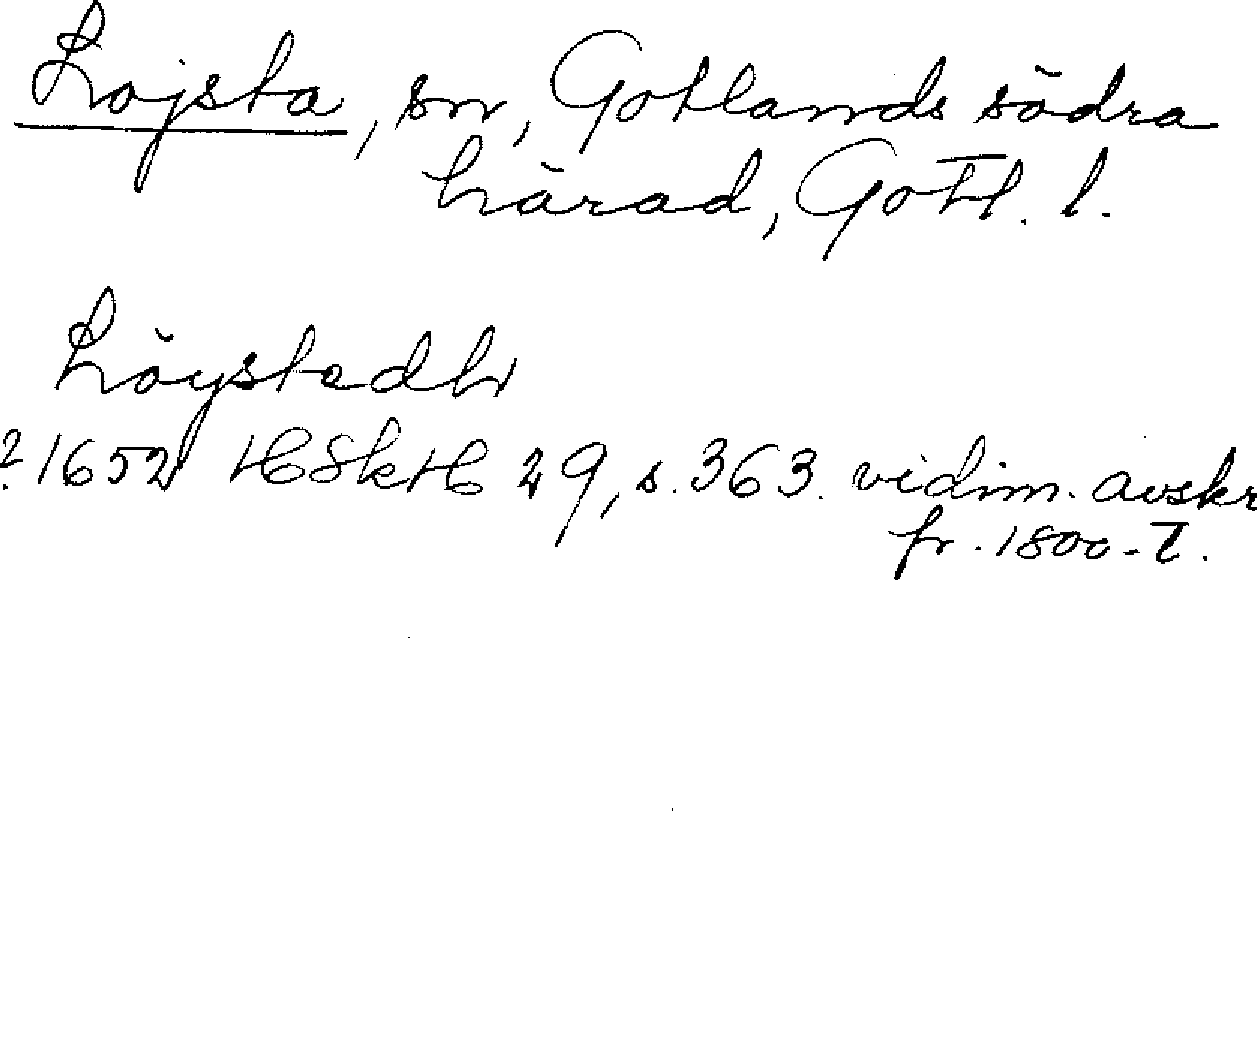 Lojsta, sn, Gotlands södra
härad, Gotl. l.
Löystedh
? 1652 HSkH 29, s. 363. vidim. avskr
fr. 1800-t.